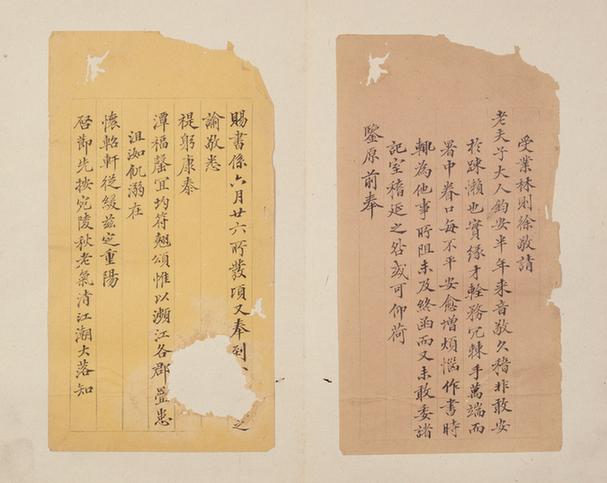 受業林則徐敬請
老夫子大人鈞安半年來音敬久稽非敢安
於疎懶也實緣才輇務冗棘手萬端而
署中眷口每不平安愈增煩惱作書時
輒為他事所阻未及終函而又未敢委諸
記室稽延之咎或可仰荷
鑒原前奉
賜書係六月廿六所發頃又奉到之
諭敬悉
禔躬康泰
潭福馨宜均符翹頌惟以瀕江各郡疊患
沮洳飢溺在
懷軺軒從緩茲定重陽
啓節先按宛陵秋老氣清江潮大落知